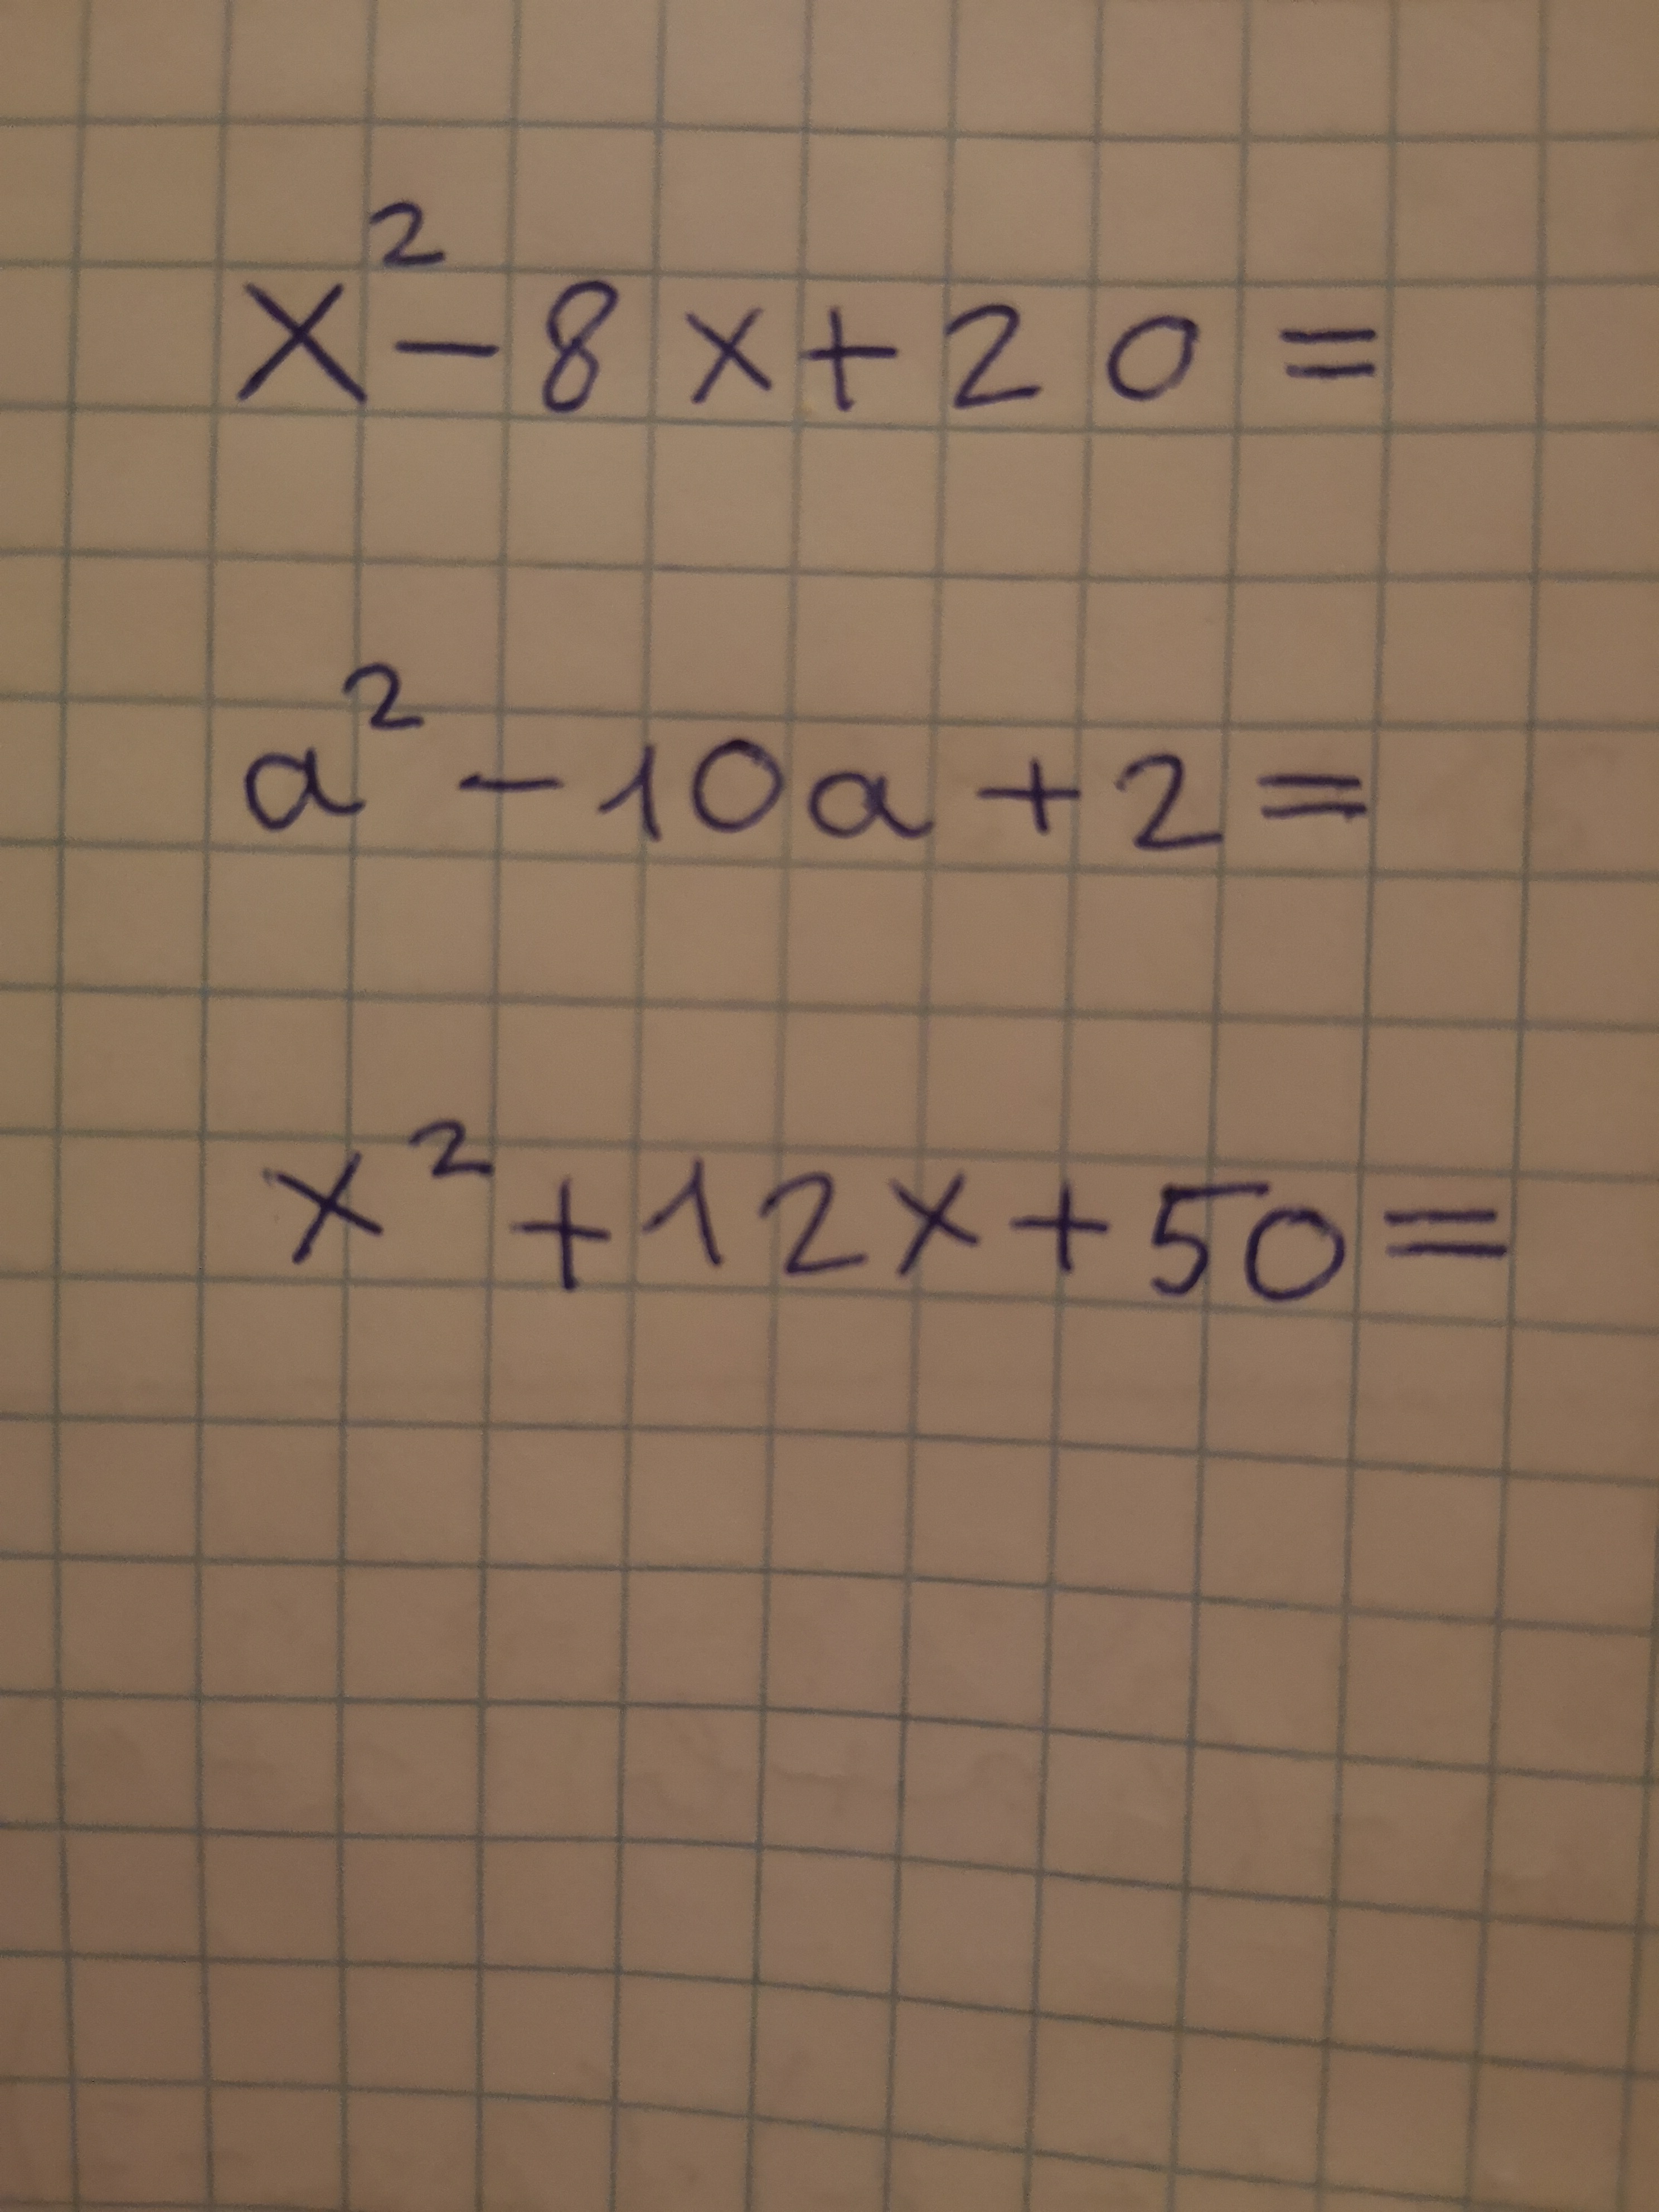 x² - 8x + 20 =
a² - 10a + 2 =
x² + 12x + 50 =